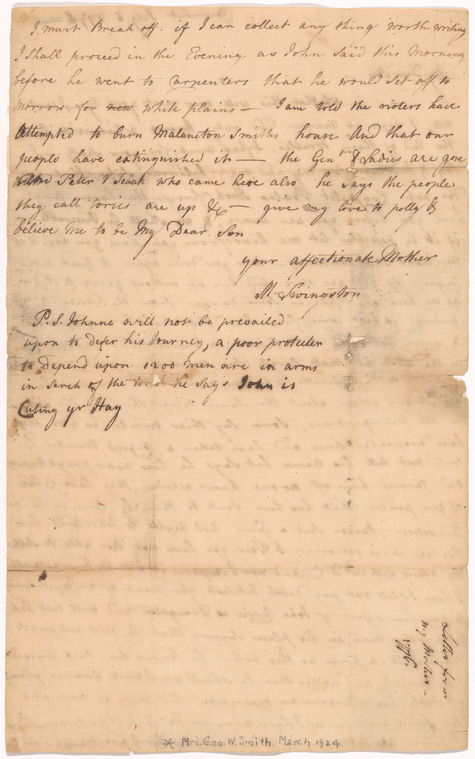 I must Break off. if I can collect any thing worth writing
I shall proceed in the Evening. as John said this Morning
before he went to Carpenters that he would set off to
morrow for new white plains — I am told the rioters have
Attempted to burn Malancton Smiths house And that our
people have extinguished it — the Genn & Ladies are gone
Peter V who came here also he says the people
they call tories are up &c — give my love to polly &
believe me to be My Dear Son
your affectionate Mother
M Livingston
P.S. Johnne will not be prevailed
upon to defer his Journey, a poor protecter
to Depend upon 1200 men are in arms
in serch of the he says John is
Cuting yr Hay
Letter from
my Mother —
1776
* Mrs. Geo. W. Smith. March 1924.